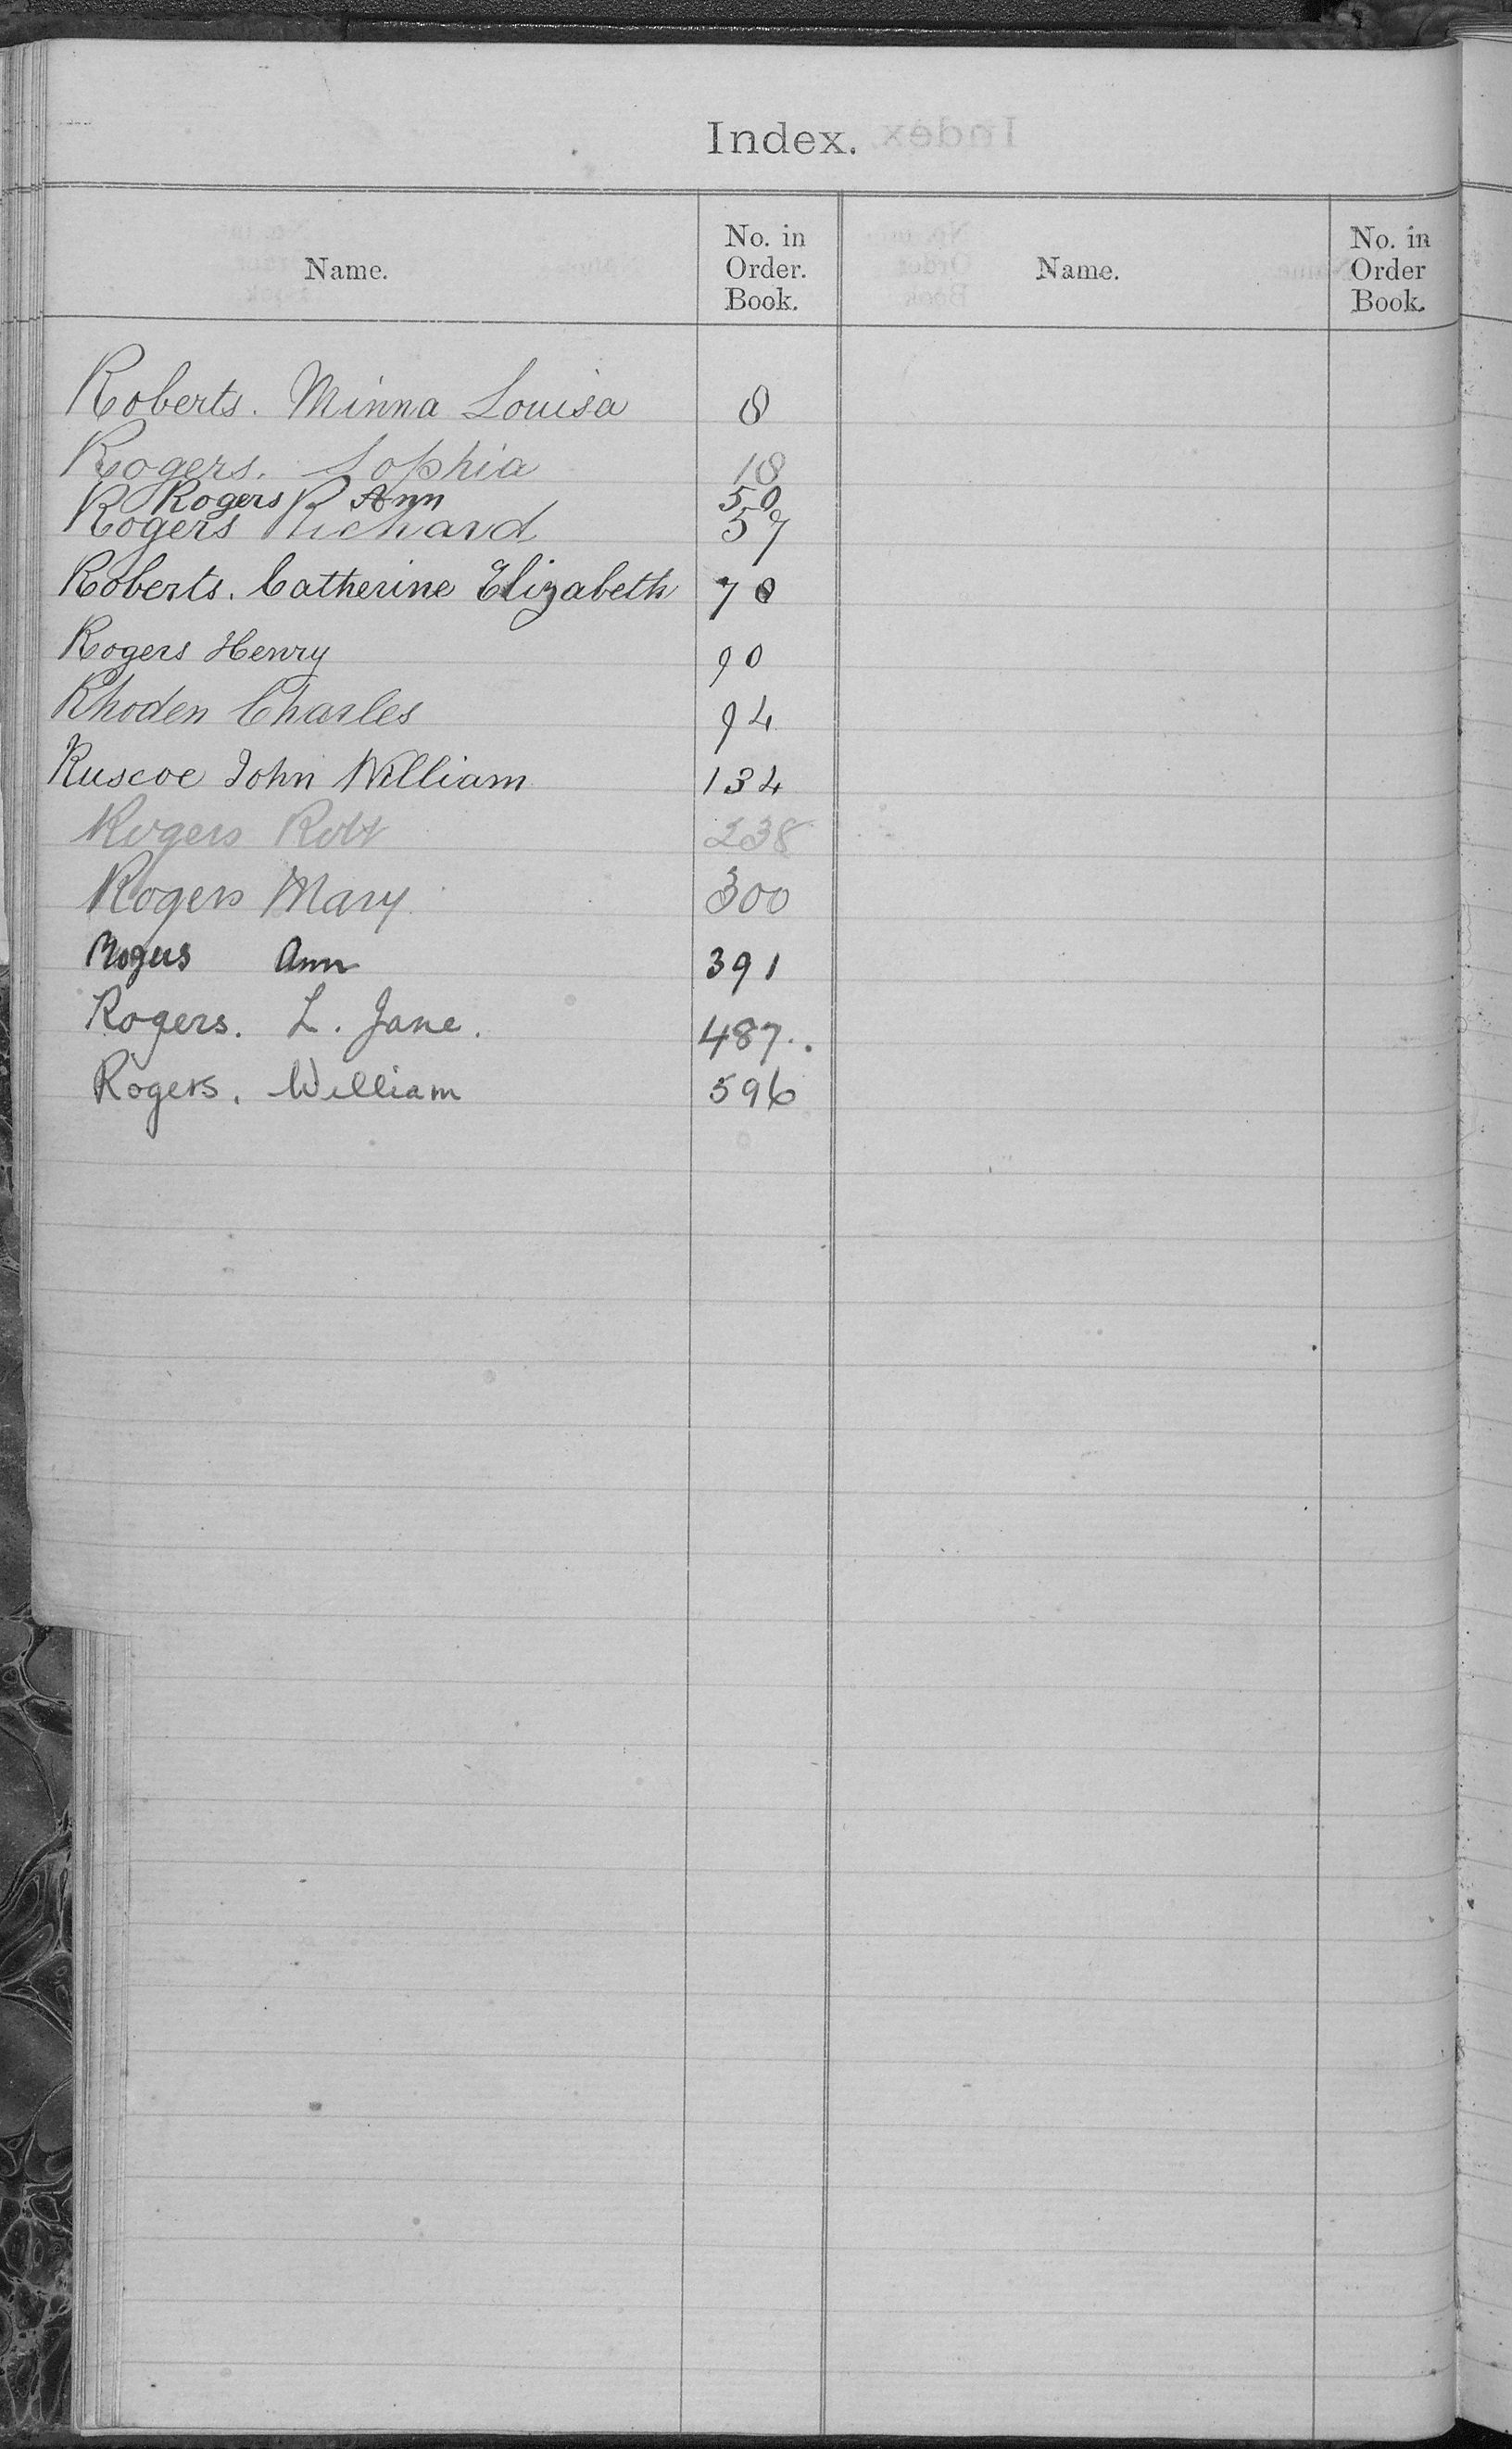 Index.
Name. No. in Order. Book. Name. No. in Order Book.
Roberts. Minna Louisa 8
Rogers. Sophia 18
Rogers Ann 50
Rogers Richard 57
Roberts. Catherine Elizabeth 78
Rogers Henry 90
Rhoden Charles 94
Ruscoe John William 134
Rogers Robt 238
Rogers Mary 300
Rogers Ann 391
Rogers. L. Jane. 487..
Rogers. William 596